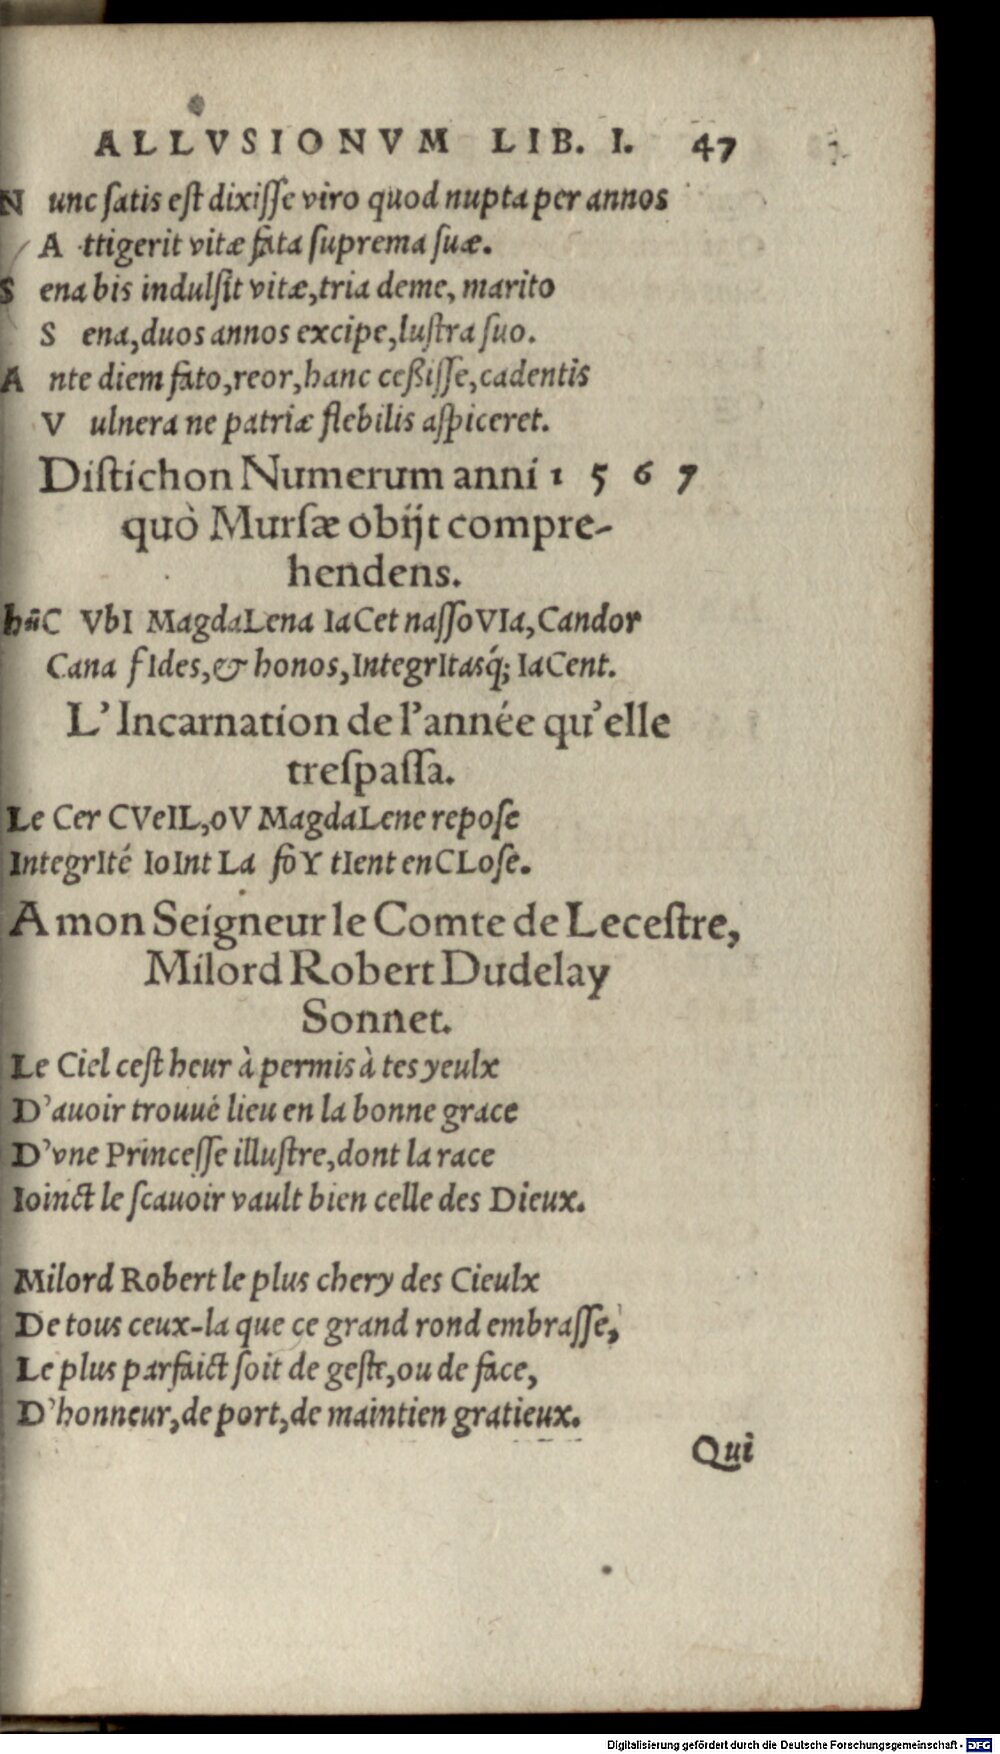 ALLVSIONVM LIB. I. 47
N unc ſatis eſt dixiſſe viro quod nupta per annos
A ttigerit vitæ fata ſuprema ſuæ.
S ena bis indulſit vitæ, tria deme, marito
S ena, duos annos excipe, luſtra ſuo.
A nte diem fato, reor, hanc ceßiſſe, cadentis
V ulnera ne patriæ flebilis aſpiceret.
Diſtichon Numerum anni 1 5 6 7
quò Murſæ obijt compre-
hendens.
hũC VbI MagdaLena IaCet naſſoVIa, Candor
Cana fIdes, & honos, IntegrItasq́; IaCent.
L' Incarnation de l'année qu'elle
treſpaſſa.
Le Cer CVeIL, oV MagdaLene repoſe
IntegrIté IoInt La foY tIent enCLoſe.
A mon Seigneur le Comte de Leceſtre,
Milord Robert Dudelay
Sonnet.
Le Ciel ceſt heur à permis à tes yeulx
D'auoir trouué lieu en la bonne grace
D'vne Princeſſe illuſtre, dont la race
Ioinct le ſcauoir vault bien celle des Dieux.
Milord Robert le plus chery des Cieulx
De tous ceux-la que ce grand rond embraſſe,
Le plus parfaict ſoit de geſte, ou de face,
D'honneur, de port, de maintien gratieux.
Qui
Digitalisierung gefördert durch die Deutsche Forschungsgemeinschaft - DFG